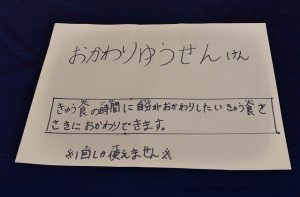 おかわりゆうせんけん
きゅう食の時間に自分がおかわりしたいきゅう食を
さきにおかわりできます。
※1回しか使えません※